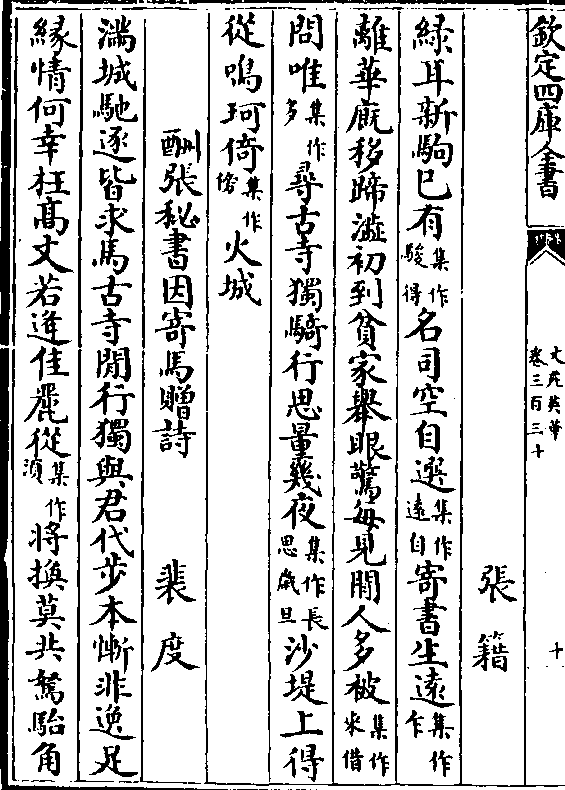 欽定四庫全書
文苑英華
卷三百三十
十
張籍
緑耳新駒已有集作駿得名司空自選集作遠自寄書生遠集作乍
離華廐移蹄澁初到貧家舉眼驚每見閒人多被集作來借
問唯集作多尋古寺獨騎行思量幾夜集作長思歲旦沙堤上得
從鳴珂倚集作傍火城
酬張秘書因寄馬贈詩　裴度
滿城馳逐皆求馬古寺閒行獨與君代步本慚非逸足
縁情何幸枉高文若逢佳麗從集作湏將換莫共駑駘角